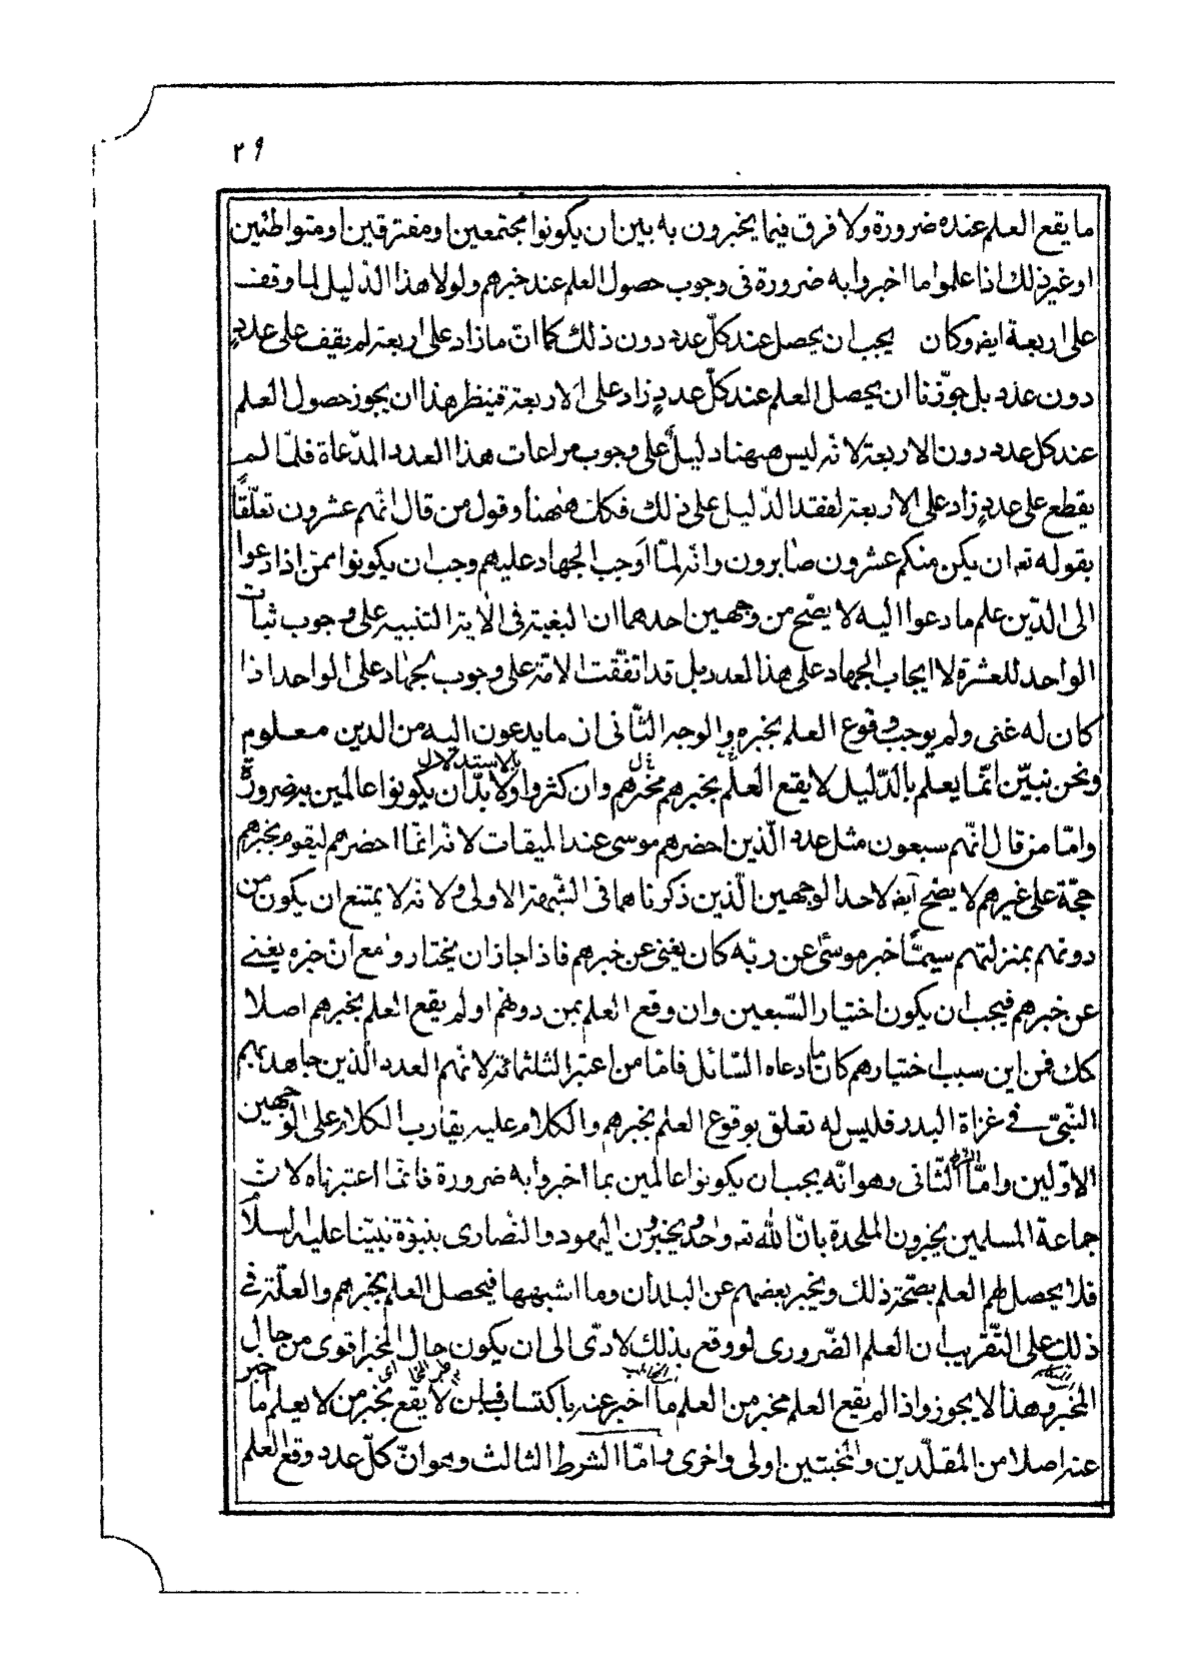 ٢٩
ما يقع العلم عنده ضرورة ولا فرق فيما يخبرون به بين ان يكونوا مجتمعين او مفترقين او متواطئين
او غير ذلك اذا علموا ما اخبروا به ضرورة فى وجوب حصول العلم عند خبرهم ولولا هذا الدّليل لما وقف
على اربعة ايضا وكان يجب ان يحصل عند كلّ عدد دون ذلك كما انّ ما زاد على اربعة لم يقف على عددٍ
دون عدد بل جوّزنا ان يحصل العلم عند كلّ عددٍ زاد على الاربعة فينظر هذا ان يجوز حصول العلم
عند كل عدد دون الاربعة لانّه ليس ههنا دليلٌ على وجوب مراعات هذا العدد المدّعاة فلمّا لم
يقطع على عددٍ زاد على الاربعة لفقد الدّليل على ذلك فكان ههنا وقول من قال انّهم عشرون تعلّقًا
بقوله تع ان يكن منكم عشرون صابرون وانّه لمّا اوجب الجهاد عليهم وجب ان يكونوا ممّن اذا دعوا
الى الدّين علم ما دعوا اليه لا يصّح من وجهين احدهما ان البغية فى الاية التنبيه على وجوب ثبات
الواحد للعشرة لا ايجاب الجهاد على هذا لعدد بل قد اتفقت الامّة على وجوب الجهاد على الواحد اذا
كان له غنى ولم يوجب وقوع العلم بخبره والوجه الثّانى ان ما يدعون اليه من الدين معلوم
بالاستدلال
ونحن نبيّن انّما يعلم بالدّليل لا يقع العلم بخبرهم مخبرهم وان كثروا ولا بدّ ان يكونوا عالمين به ضرورةً
وامّا من قال انّهم سبعون مثل عدد الّذين احضرهم موسى عند الميقات لانّه انّما احضرهم ليقوم بخبرهم
حجّة على غيرهم لا يصّح ايضا لاحد الوجهين الّذين ذكرناهما فى الشّبهة الاولى ولانّه لا يمتنع ان يكون من
دونهم بمنزلتهم سيمّا خبر موسى عن ربّه كان يغنى عن خبرهم فاذا جاز ان يختاروا مع انّ خبره يغنى
عن خبرهم فيجب ان يكون اختيار السّبعين وان وقع العلم بمن دونهم او لم يقع العلم بخبرهم اصلا
كك فمن اين سبب اختيارهم كان ما دعاه السّائل فامّا من اعتبر الثلثمائة لانّهم العدد الّذين جاهد بهم
النّبىّ فى غزاة البدر فليس له تعلق بوقوع العلم بخبرهم والكلام عليه يقارب الكلام على الوجهين
الاوّلين وامّا الشرط الثّانى وهو انّه يجب ان يكونوا عالمين بما اخبروا به ضرورة فانّما اعتبرناه لانّ
جماعة المسلمين يخبرون الملحدة بانّ اللّه تع واحد ويخبرون اليهود والنّصارى بنبوّة نبيّنا عليه السلام
فلا يحصل لهم العلم بصّحة ذلك ويخبر بعضهم عن البلدان وما اشبهها فيحصل العلم بخبرهم والعلّة فى
ذلك على التّقريب ان العلم الضّرورى لو وقع بذلك لادّى الى ان يكون حال المخبر اقوى من حال
المخبر وهذا لا يجوز واذا لم يقع العلم مخبر من العلم ما اخبر عنه باكتساب فبان لا يقع بخبر من لا يعلم ما خبر
عنه اصلا من المقلّدين والمخبتين اولى واخرى وامّا الشرط الثالث وهو انّ كلّ عدد وقع العلم